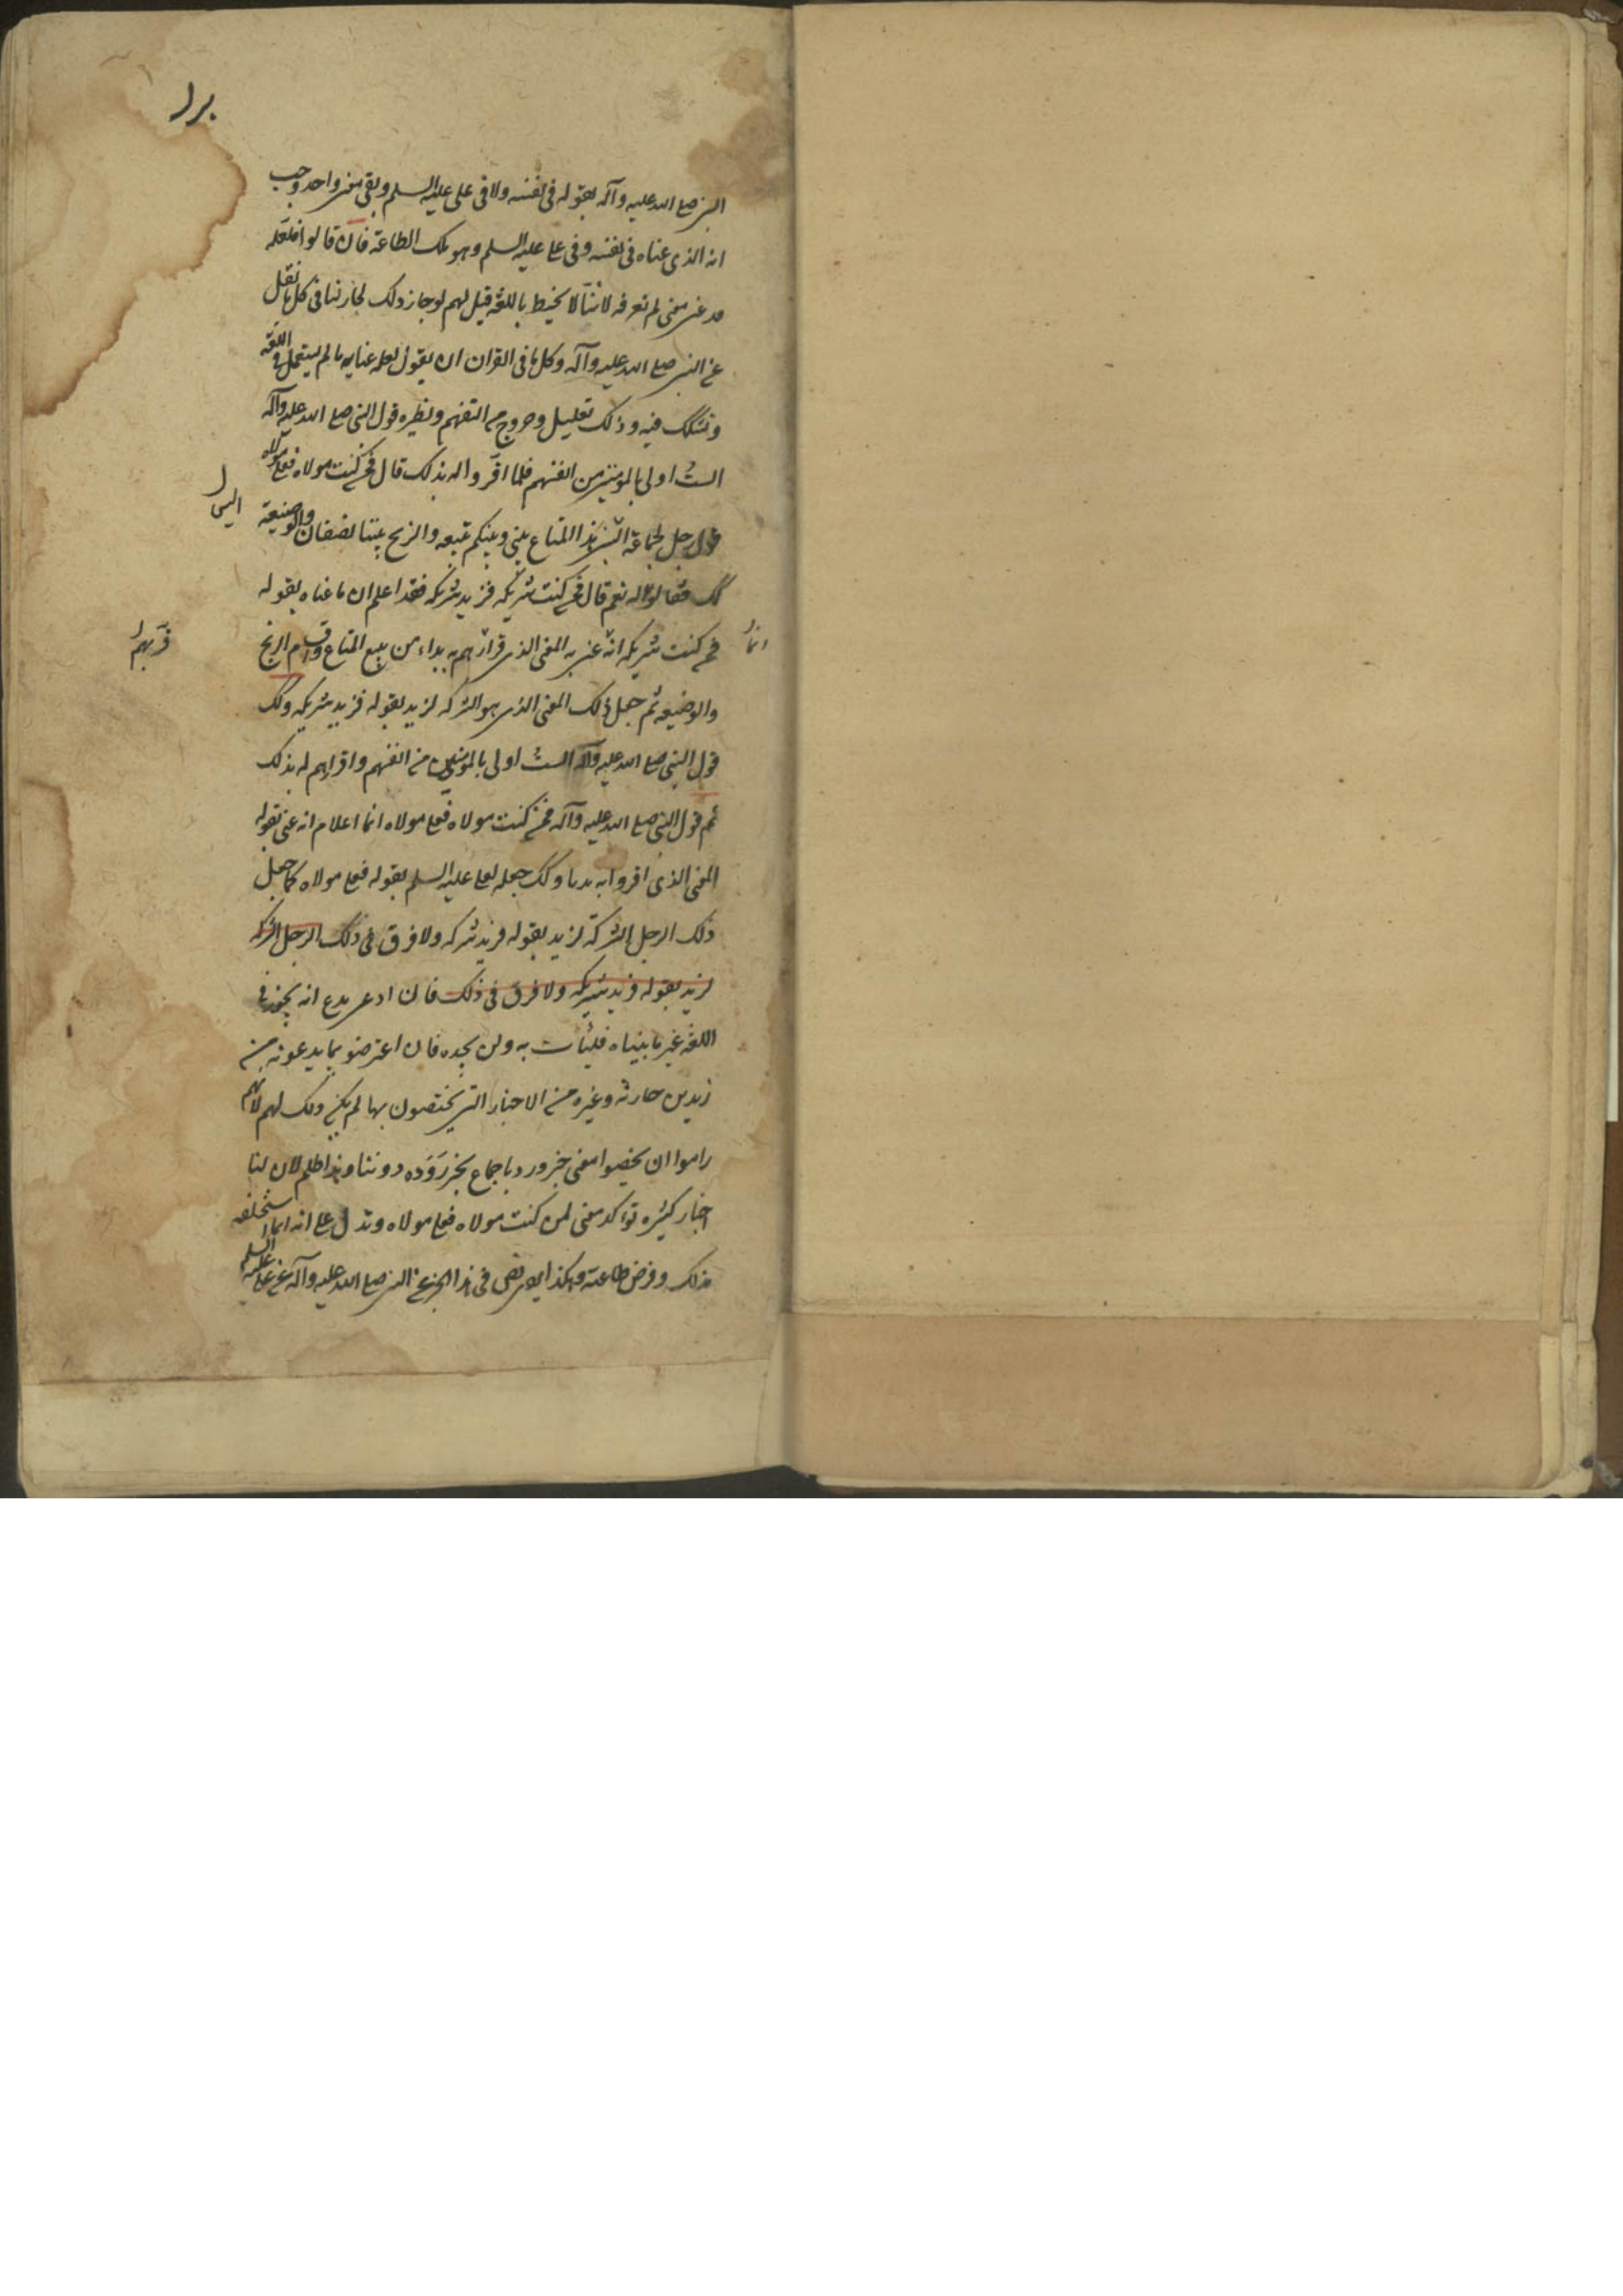 النبي صلى الله عليه وآله بقوله في نفسه ولا في علي عليه السلم وبقي معنى واحد وجب
انه الذي عناه في نفسه وفي علي عليه السلم وهو ملك الطاعة فان قالوا فلعله
قد عنى معنى لم نعرفه لاننا لا نحيط باللغة قيل لهم لو جاز ذلك لجاز لنا في كل ما نقل
عن النبي صلى الله عليه وآله وكل ما في القران ان يقول لعله عنا به ما لم يستعمل في اللغة
ونشكك فيه وذلك تعليل وخروج من التفهم ونظيره قول النبي صلى الله عليه وآله
الست اولى بالمؤمنين من انفسهم فلما اقروا له بذلك قال فمن كنت مولاه فعلي مولاه
قول رجل لجماعة اليس هذا المتاع بيني وبينكم نبيعه والربح بيننا نصفان والوضيعة
اليس
كك فقالوا له نعم قال فمن كنت شريكه فزيد شريكه فقد اعلم ان ما عناه بقوله
انما
فمن كنت شريكه انه عنى به المعنى الذي قرارهم به بداء من بيع المتاع واقتسام الربح
قررهم
والوضيعه ثم جعل ذلك المعنى الذي هو الشركه لزيد بقوله فزيد شريكه وكك
قول النبي صلى الله عليه وآله الست اولى بالمؤمنين من انفسهم واقرارهم له بذلك
ثم قول النبي صلى الله عليه وآله فمن كنت مولاه فعلي مولاه انما اعلام انه عنى بقوله
المعنى الذي اقروا به بديا وكك جعله لعلي عليه السلم بقوله فعلي مولاه كما جعل
ذلك الرجل الشركة لزيد بقوله فزيد شركه ولا فرق في ذلك الرجل الشركه
لزيد بقوله فزيد شريكه ولا فرق في ذلك فان ادعى مدع انه يجوز في
اللغة غير ما بيناه فليأت به ولن يجده فان اعترضو بما يدعونه من
زيد بن حارثه وغيره من الاخبار التي يختصون بها لم يكن ذلك لهم لانهم
راموا ان يخصوا معنى خبر ورد باجماع بخبر رووه دوننا وهذا ظلم لان لنا
اخبار كثيره تؤكد معنى لمن كنت مولاه فعلي مولاه وتدل على انه انما استخلفه
بذلك وفرض طاعته وهكذا نص في هذا الخبر عن النبي صلى الله عليه وآله عن علي عليه السلم